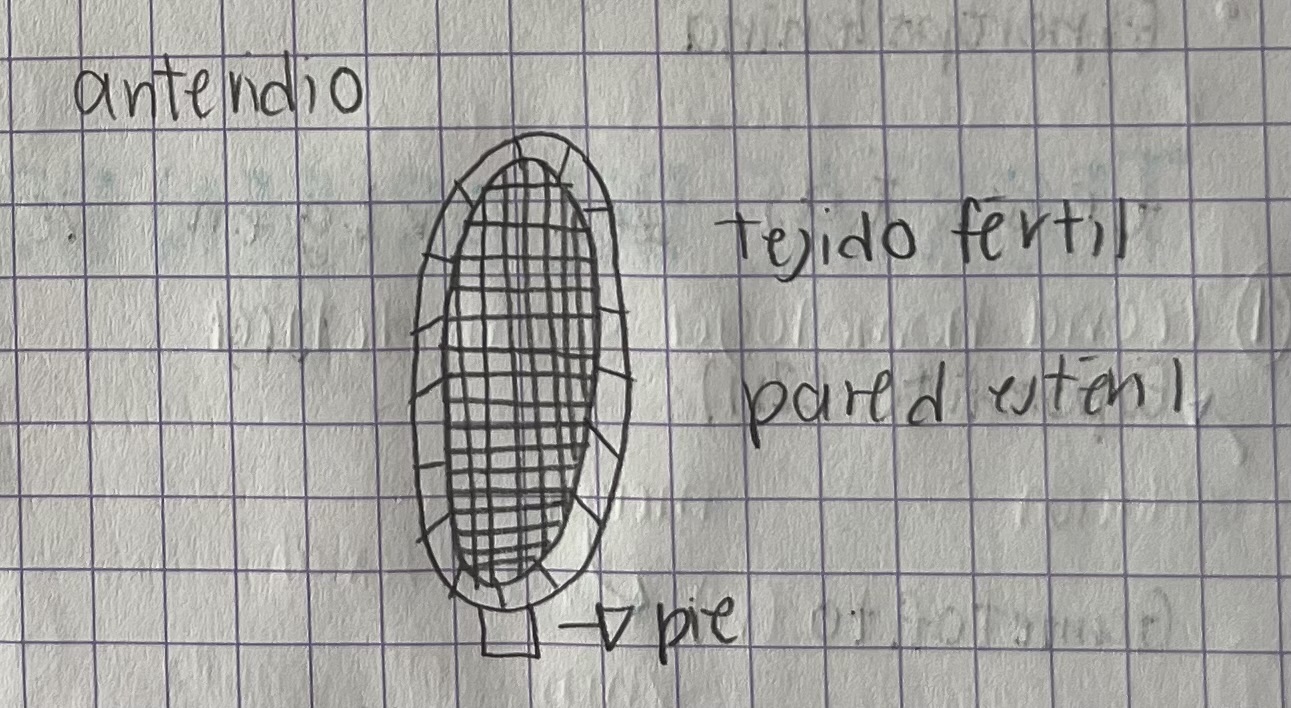 anteridio
tejido fértil
pared estéril
pie